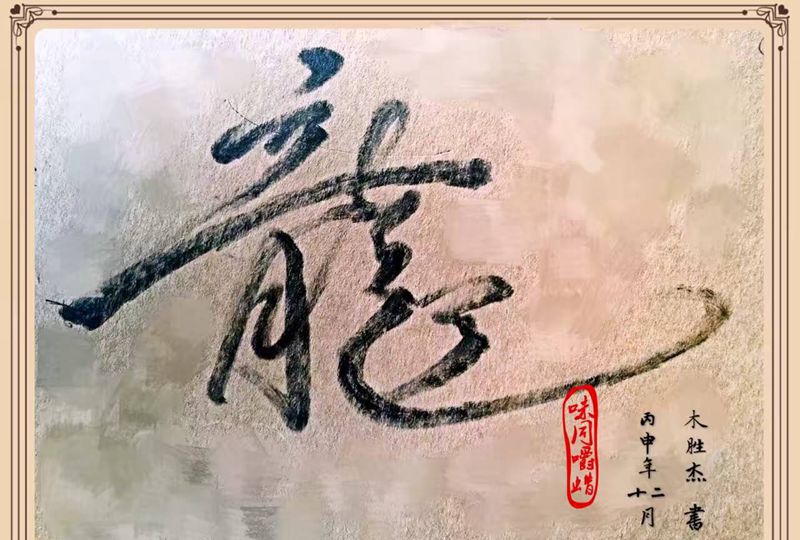 龍
木胜杰 書
丙申年十二月
味同嚼蜡